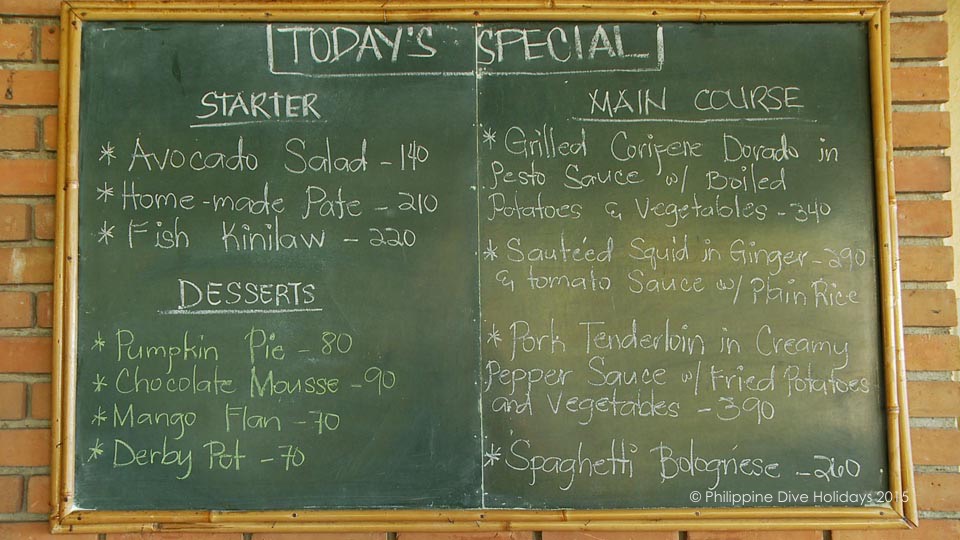 TODAY'S SPECIAL
STARTER
* Avocado Salad - 140
* Home-made Pate - 210
* Fish Kinilaw - 220
DESSERTS
* Pumpkin Pie - 80
* Chocolate Mousse - 90
* Mango Flan - 70
* Derby Pot - 70
MAIN COURSE
* Grilled Corifene Dorado in
Pesto Sauce w/ Boiled
Potatoes & Vegetables - 340
* Sauteéd Squid in Ginger - 290
& tomato Sauce w/ Plain Rice
* Pork Tenderloin in Creamy
Pepper Sauce w/ Fried Potatoes
and Vegetables - 390
* Spaghetti Bolognése - 260
© Philippine Dive Holidays 2015